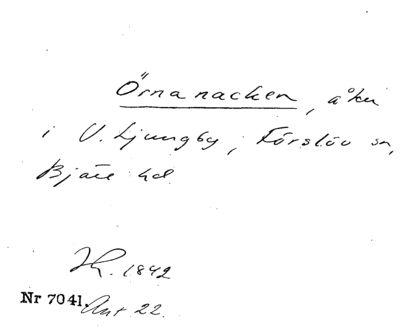 Örnanacken, åker
i V. Ljungby, Förslöv sn,
Bjäre hd
1842
Nr 7041. Ant 22.